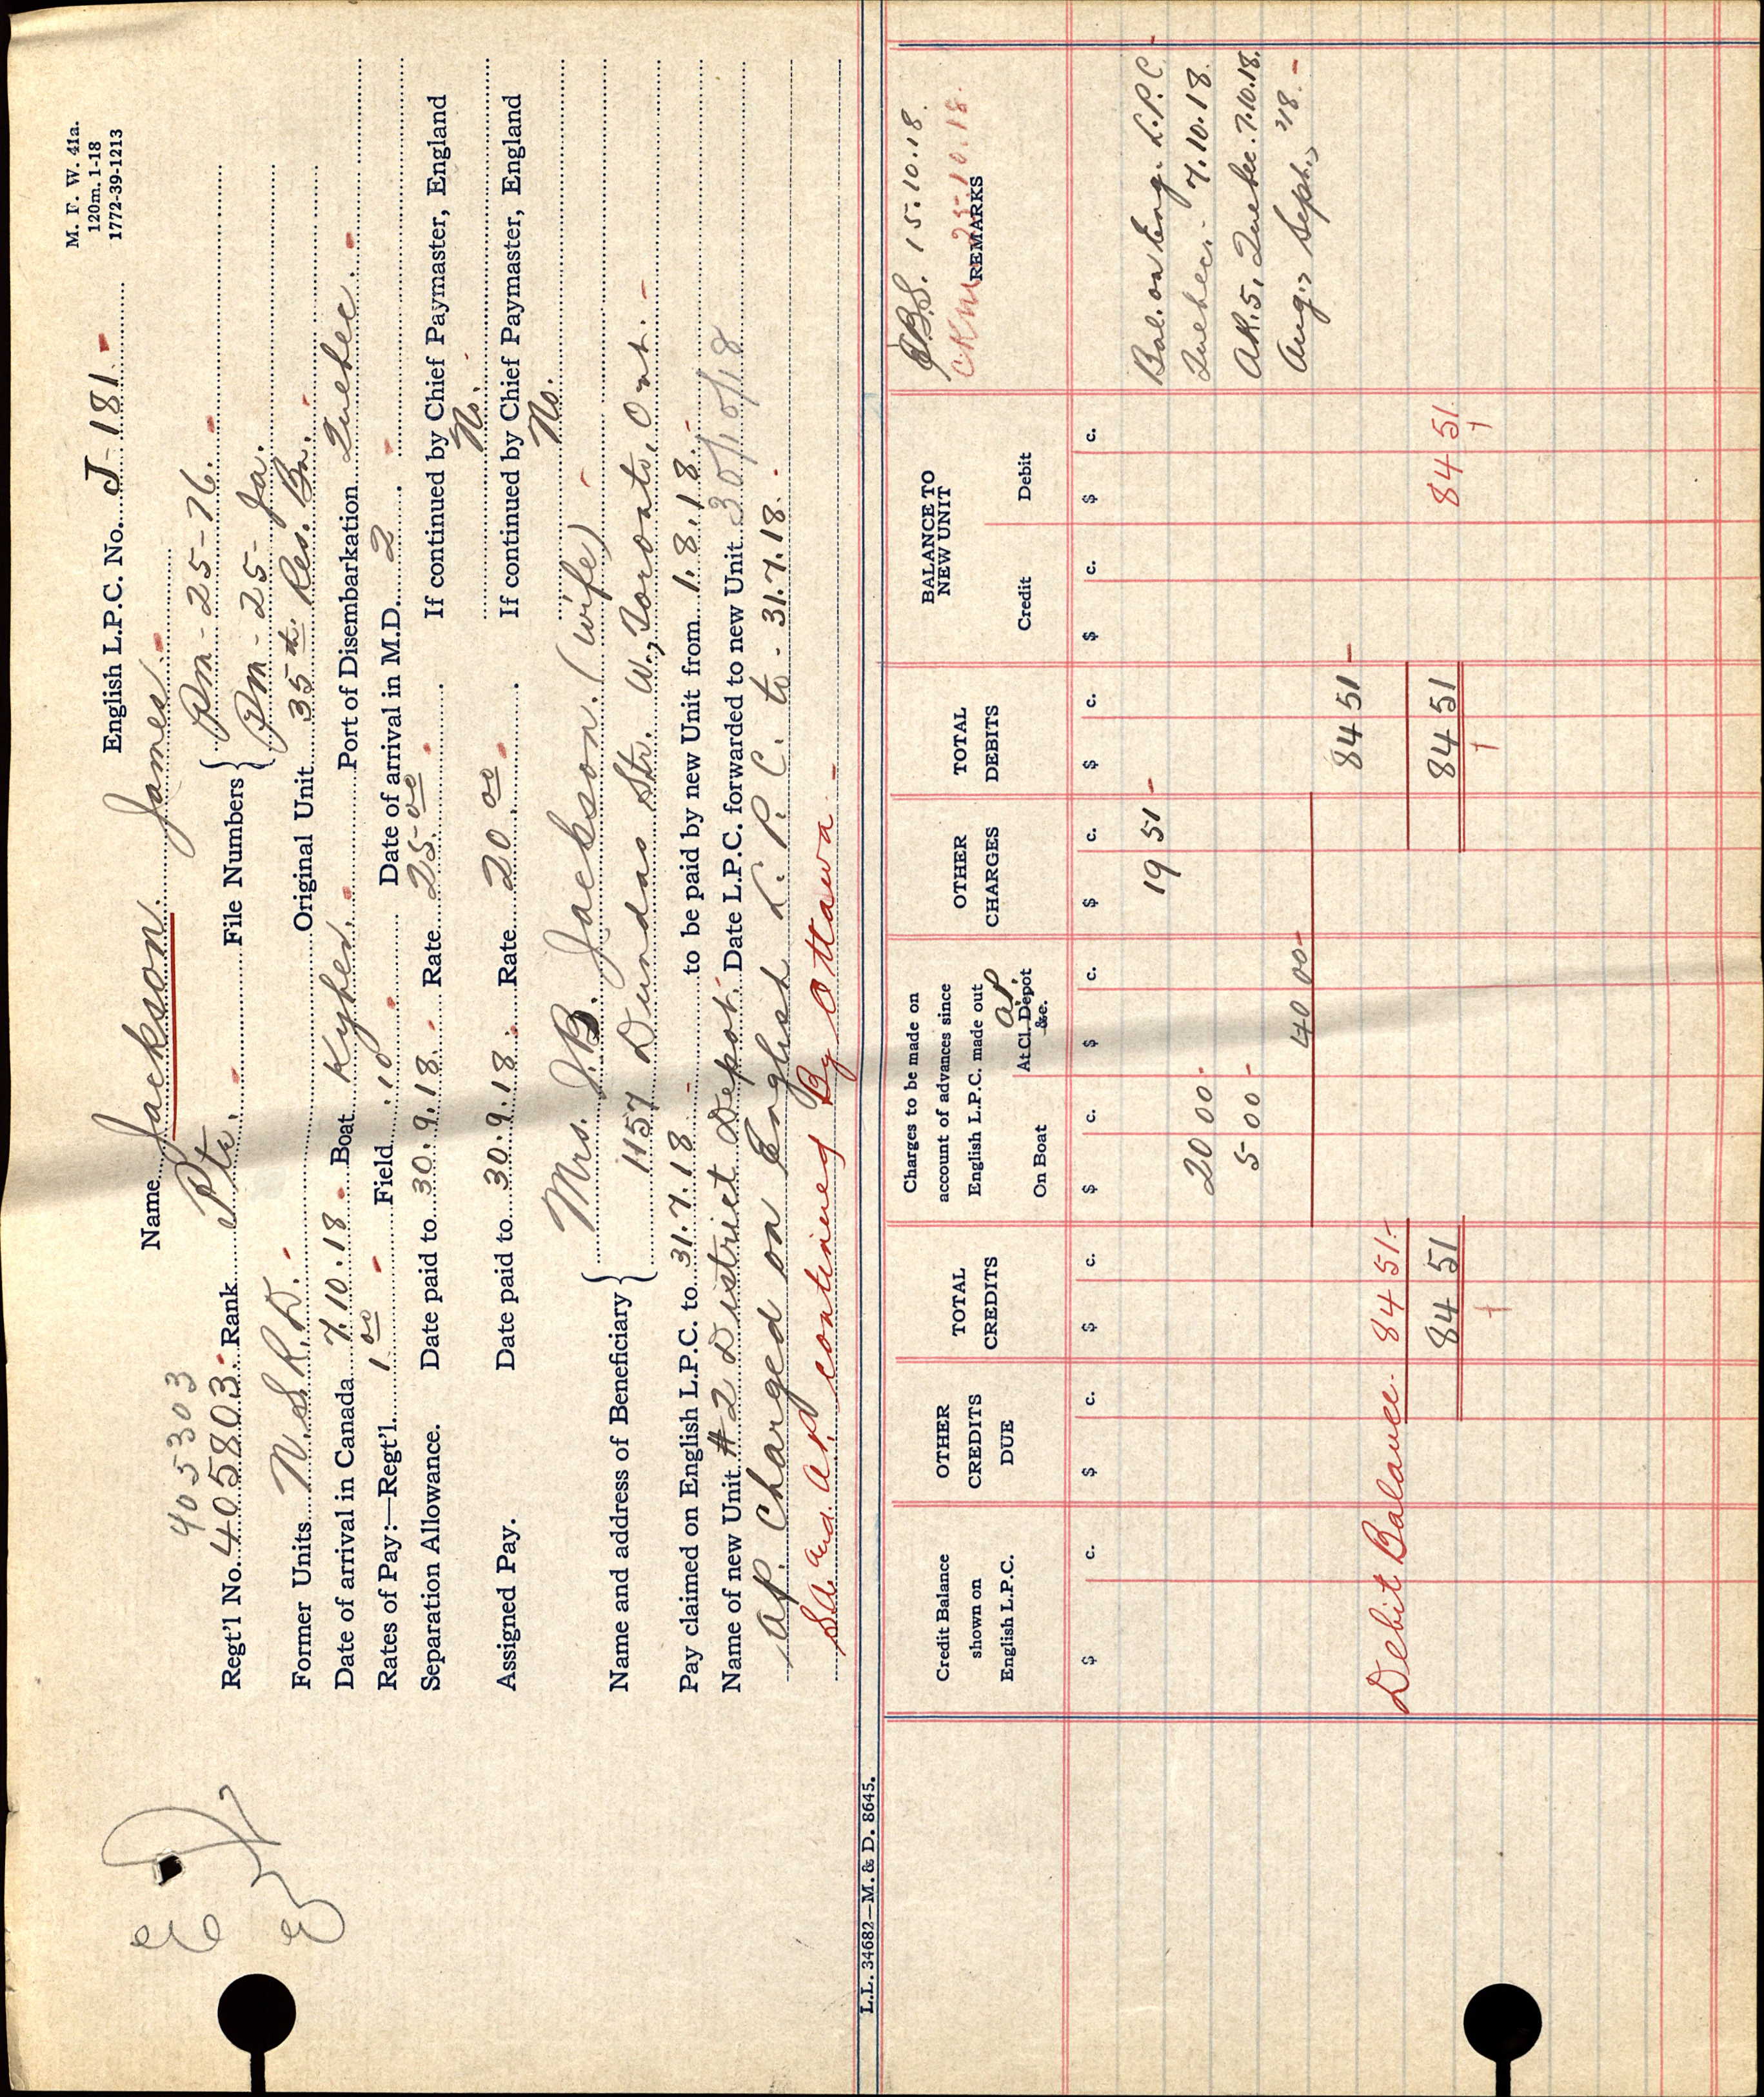 M. F. W. 41a.
120m. 1-18
1772-39-1213
English L.P.C. No. J-181-
Name Jackson. James.
405303
Regt'l No. 405803. Rank Pte. File Numbers { Pm-25-76.
Pm-25-Ja.
Former Units N.S.R.D. Original Unit 35th. Res. Bn.
Date of arrival in Canada 7.10.18 Boat Kyber. Port of Disembarkation Quebec.
Rates of Pay:—Regt'l. 1.00 Field .10 Date of arrival in M.D. 2
Separation Allowance. Date paid to 30.9.18. Rate 25.00 If continued by Chief Paymaster, England
No.
Assigned Pay. Date paid to 30.9.18. Rate 20.00 If continued by Chief Paymaster, England
No.
Name and address of Beneficiary { Mrs. J.B. Jackson. (wife)
1157 Dundas Str. W., Toronto, Ont.
Pay claimed on English L.P.C. to 31.7.18 to be paid by new Unit from 1.8.18.
Name of new Unit #2 District Depot. Date L.P.C. forwarded to new Unit 30/10/18
A.P. Charged on English L.P.C. to 31.7.18.
S.A. and A.P. continued By Ottawa.
L.L. 34682—M. & D. 8645.
15.10.18.
25.10.18.
Credit Balance shown on English L.P.C.
OTHER CREDITS DUE
TOTAL CREDITS
Charges to be made on account of advances since English L.P.C. made out
On Boat
At Cl. Depot &c. AP
OTHER CHARGES
TOTAL DEBITS
BALANCE TO NEW UNIT
Credit
Debit
REMARKS
$ c. $ c. $ c. $ c. $ c. $ c. $ c. $ c. $ c.
19 51 - Bal. on Eng. L.P.C.
20 00 - Quebec. 7.10.18.
5 00 - AR.5, Quebec. 7.10.18.
40 00- Aug., Sept., '18.
84 51
Debit Balance. 84 51.
84 51 84 51 84 51